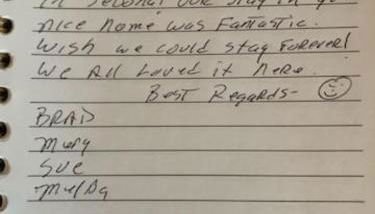 in second our stay in
nice home was Fantastic.
Wish we could stay Forever!
We All Loved it here.
Best Regards-
BRAD
Mary
Sue